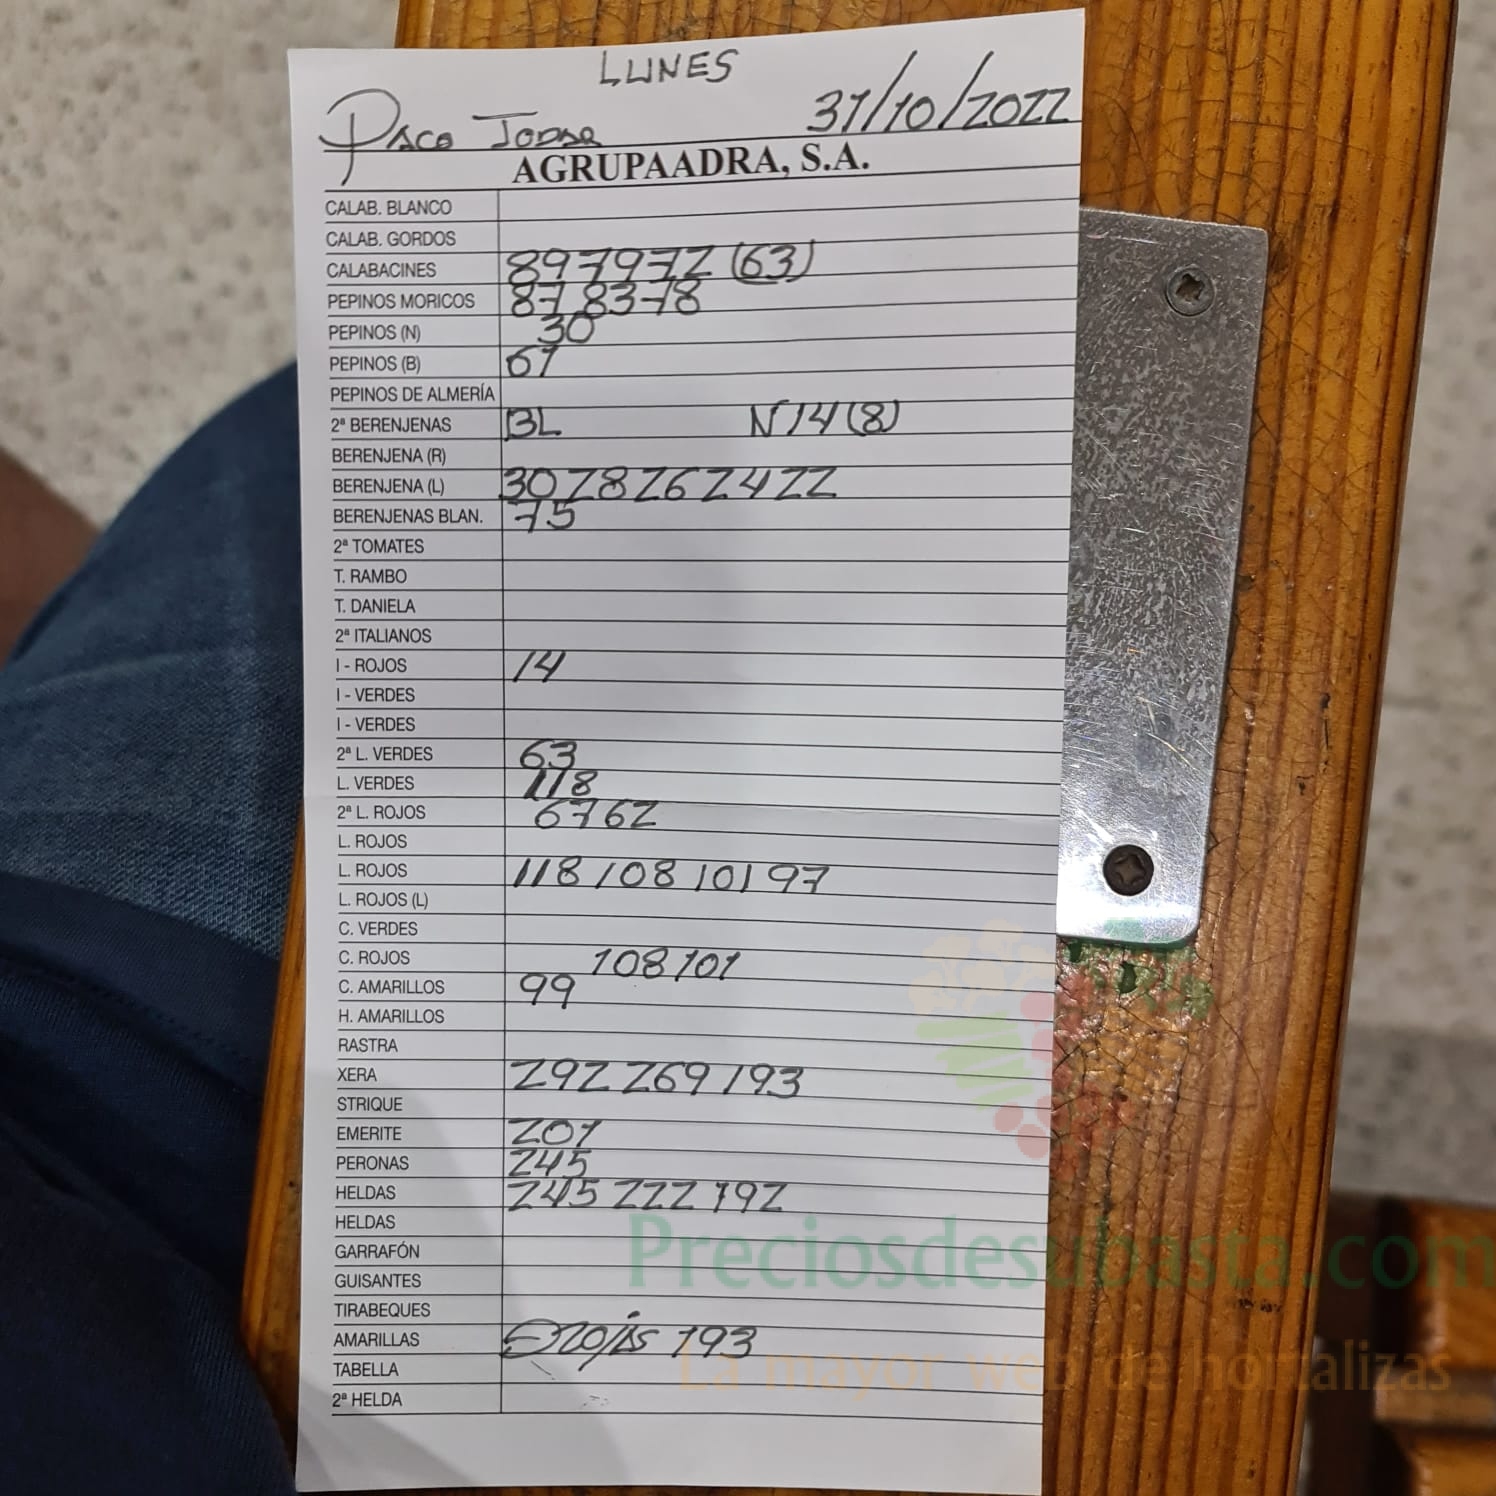 LUNES
PACO JODAR 31/10/2022
AGRUPAADRA, S.A.
CALAB. BLANCO
CALAB. GORDOS
CALABACINES 89 79 72 (63)
PEPINOS MORICOS 87 83 78
PEPINOS (N) 30
PEPINOS (B) 61
PEPINOS DE ALMERÍA
2ª BERENJENAS BL N 14 (8)
BERENJENA (R)
BERENJENA (L) 30 28 26 24 22
BERENJENAS BLAN. 75
2ª TOMATES
T. RAMBO
T. DANIELA
2ª ITALIANOS
I - ROJOS 14
I - VERDES
I - VERDES
2ª L. VERDES 63
L. VERDES 118
2ª L. ROJOS 67 62
L. ROJOS
L. ROJOS 118 108 101 97
L. ROJOS (L)
C. VERDES
C. ROJOS 108 101
C. AMARILLOS 99
H. AMARILLOS
RASTRA
XERA 292 269 193
STRIQUE
EMERITE 201
PERONAS 245
HELDAS 245 222 192
HELDAS
GARRAFÓN
GUISANTES
TIRABEQUES
AMARILLAS 193
TABELLA
2ª HELDA
Preciosdesubasta.com
La mayor web de hortalizas